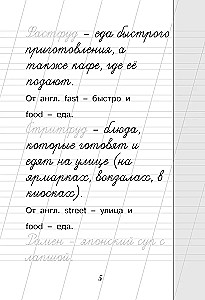 Фастфуд – еда быстрого
приготовления, а
также кафе, где её
подают.
От англ. fast – быстро и
food – еда.
Стритфуд – блюда,
которые готовят и
едят на улице (на
ярмарках, вокзалах, в
киосках).
От англ. street – улица и
food – еда.
Рамен – японский суп с
лапшой.
5